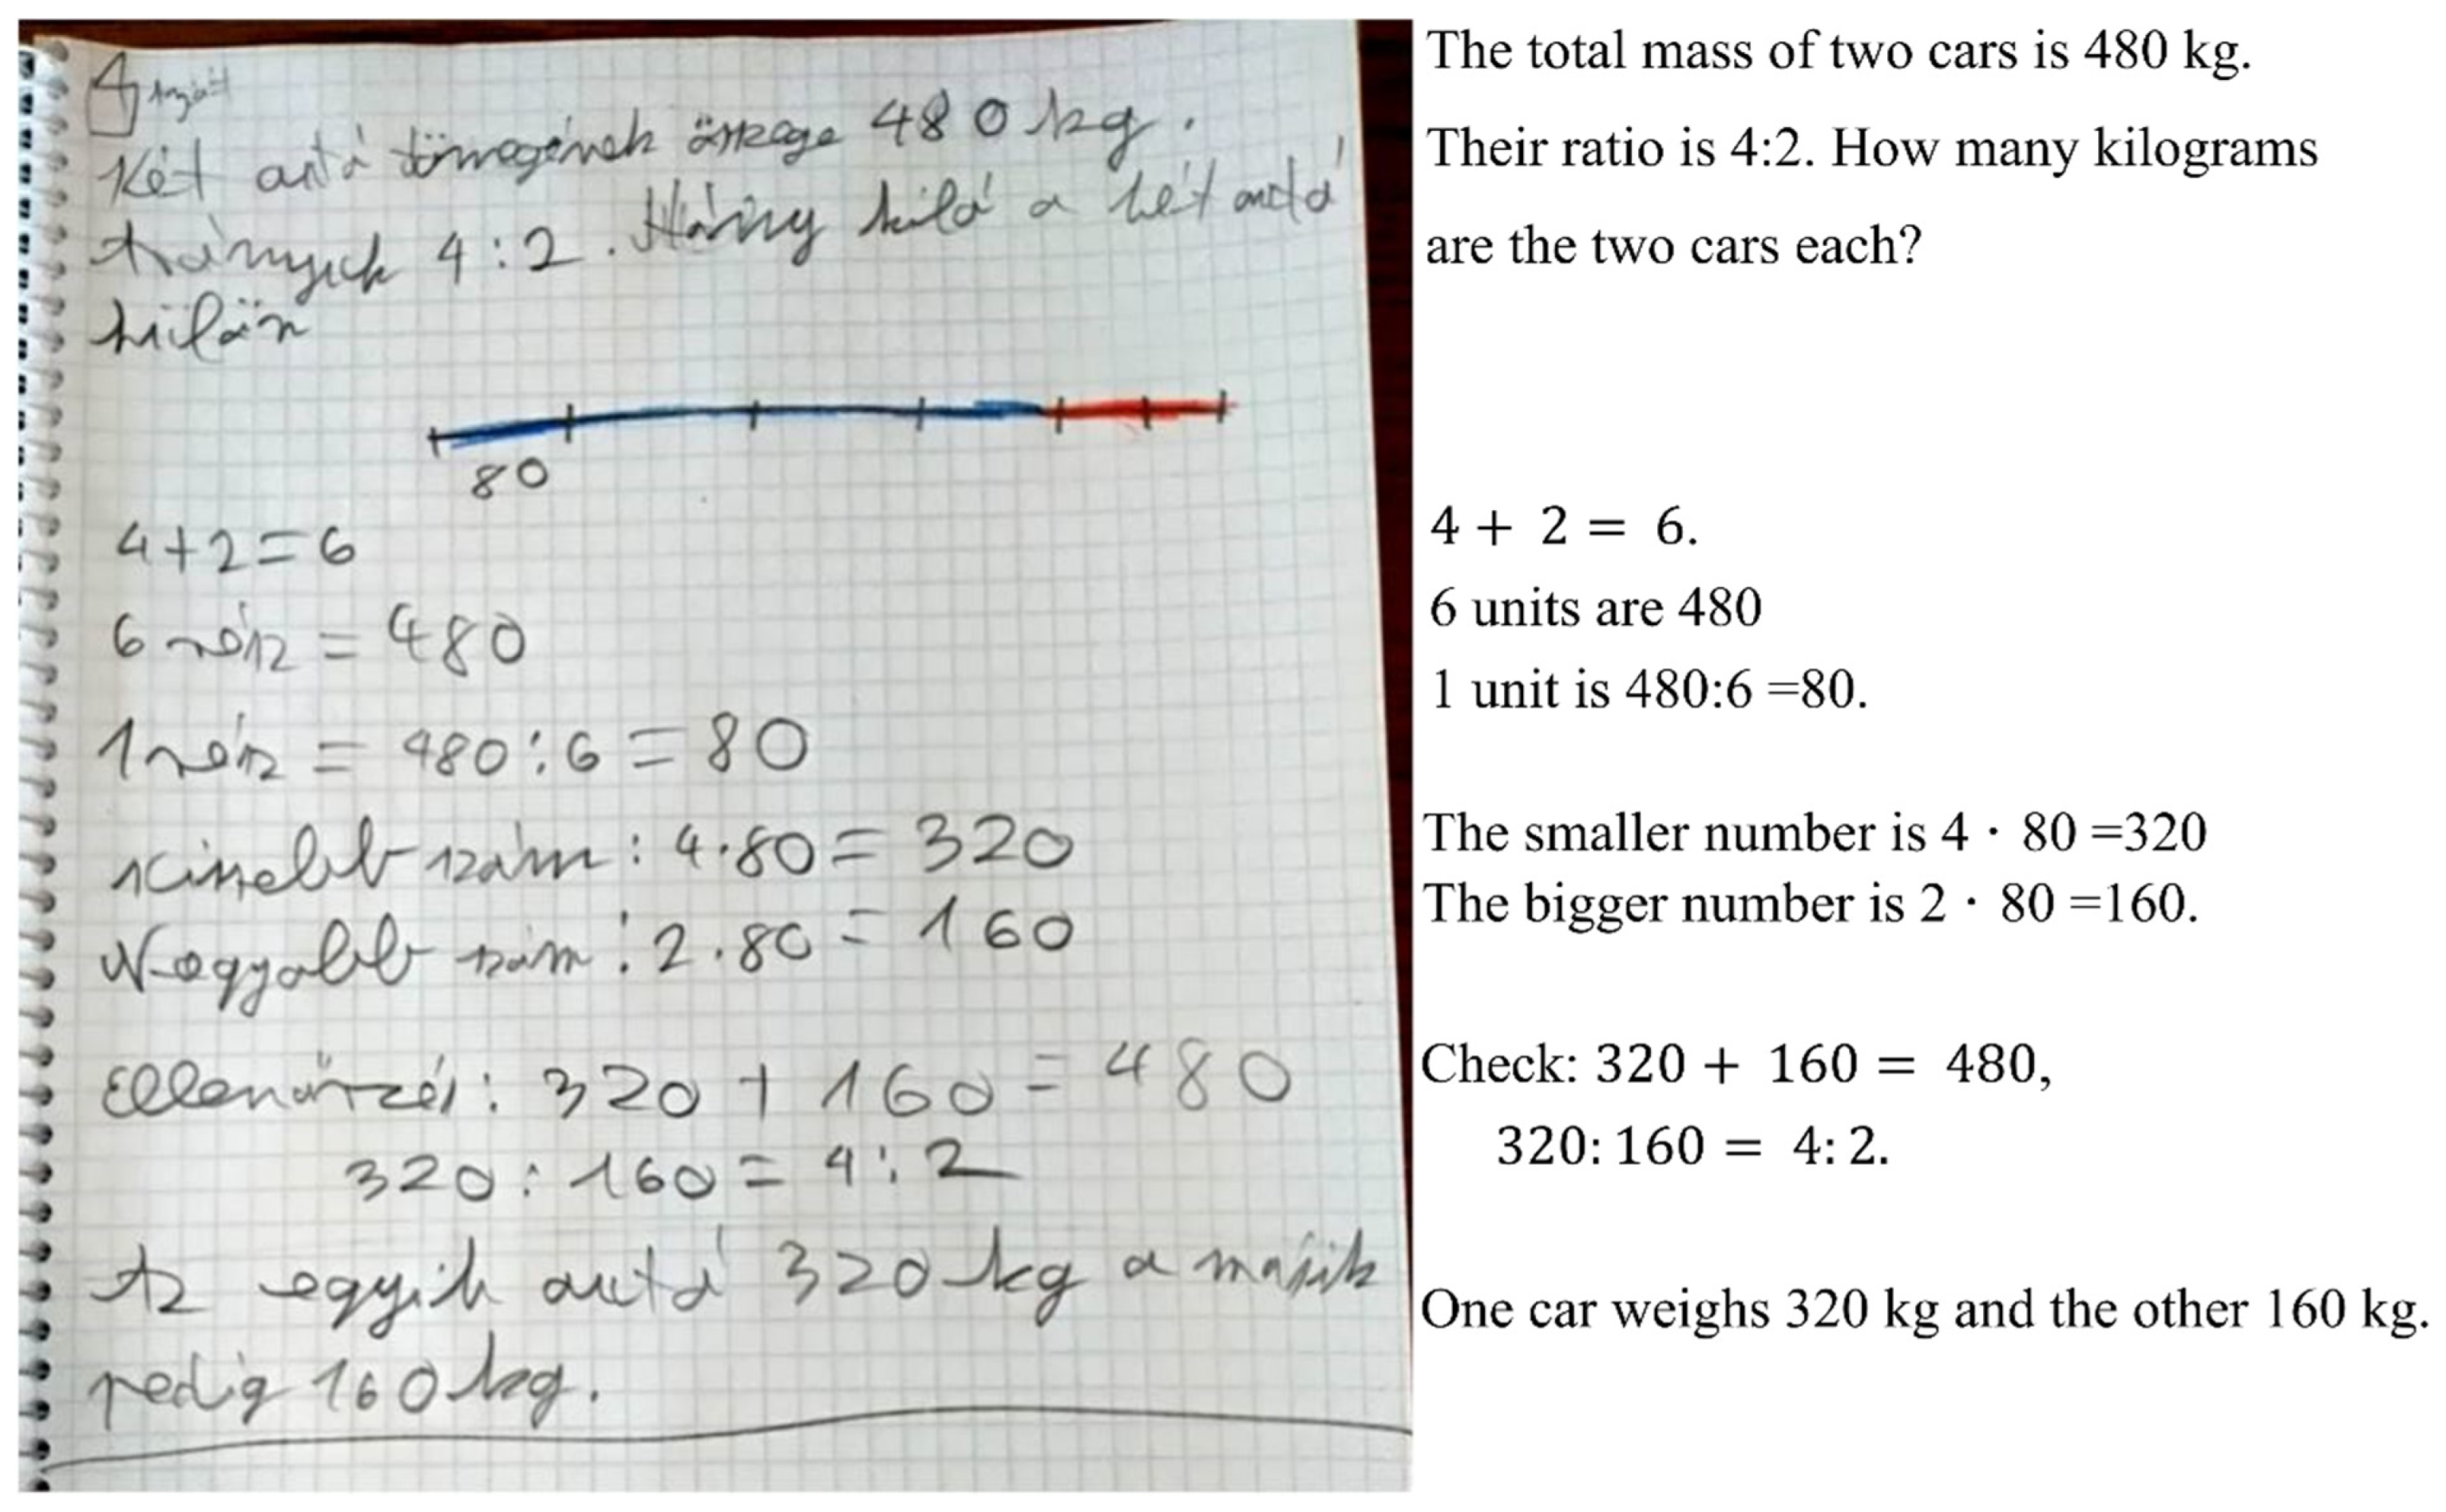 4
Két autó tömegének összege 480 kg.
Arányuk 4:2. Hány kiló a két autó
külön
80
4+2=6
6 rész = 480
1 rész = 480:6 = 80
Kissebb szám: 4·80 = 320
Nagyobb szám: 2·80 = 160
Ellenőrzés: 320 + 160 = 480
320 : 160 = 4:2
Az egyik autó 320 kg a másik
pedig 160 kg.
The total mass of two cars is 480 kg.
Their ratio is 4:2. How many kilograms
are the two cars each?
4 + 2 = 6.
6 units are 480
1 unit is 480:6 =80.
The smaller number is 4 · 80 =320
The bigger number is 2 · 80 =160.
Check: 320 + 160 = 480,
320: 160 = 4: 2.
One car weighs 320 kg and the other 160 kg.